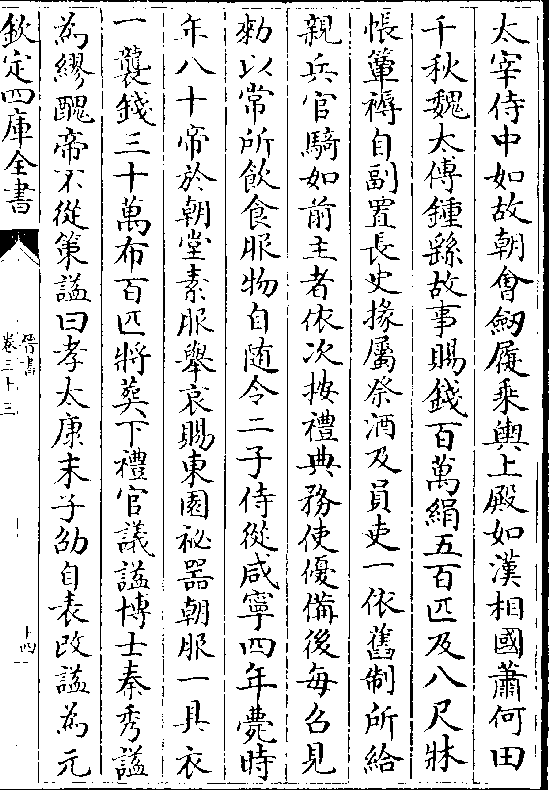 太宰侍中如故朝會劒履乘輿上殿如漢相國蕭何田
千秋魏太傅鍾繇故事賜錢百萬絹五百匹及八尺牀
帳簟褥自副置長史掾屬祭酒及員吏一依舊制所給
親兵官騎如前主者依次按禮典務使優備後每召見
勅以常所飲食服物自随令二子侍從咸寧四年薨時
年八十帝於朝堂素服舉哀賜東園祕器朝服一具衣
一襲錢三十萬布百匹將葬下禮官議謚博士奉秀謚
為繆醜帝不從策謚曰孝太康末子劭自表改謚為元
欽定四庫全書
晉書
卷三十三
十四